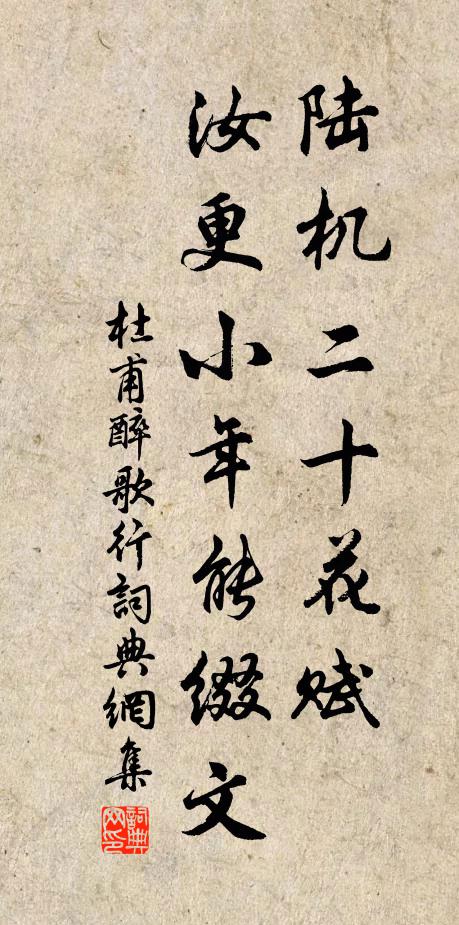 陆机二十花赋
汝更小年能缀文
杜甫醉歌行詞典網集
詞典
网印